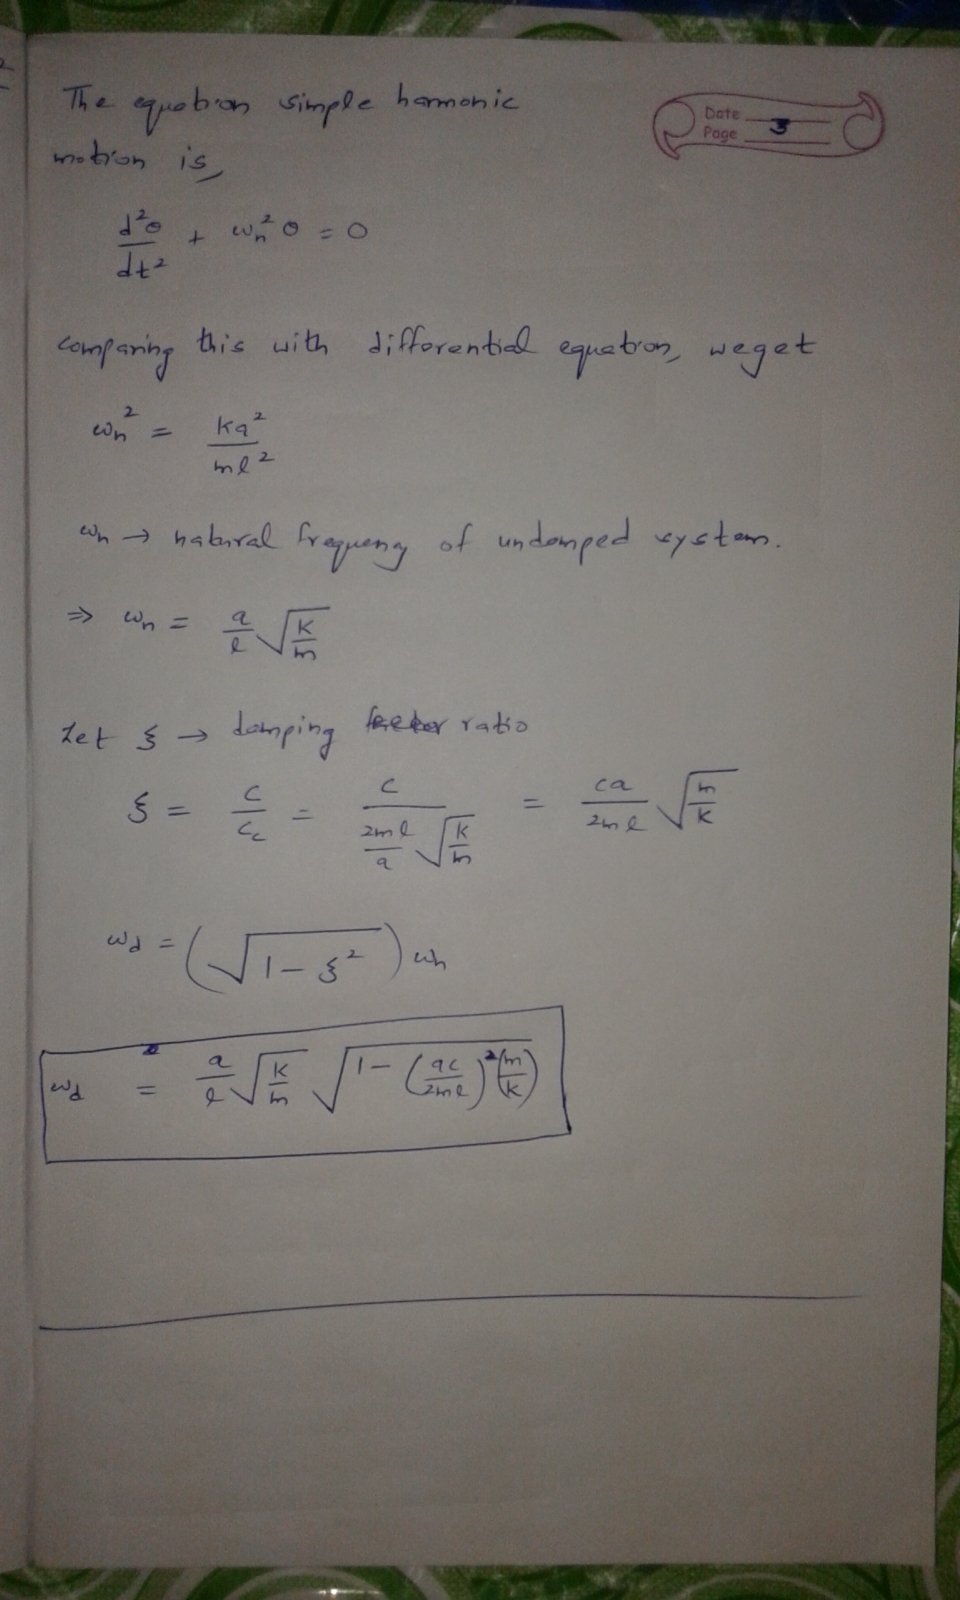 The equation simple harmonic
Date
Page 3
motion is,
d²θ/dt² + ωn² θ = 0
comparing this with differential equation, we get
ωn² = ka²/ml²
ωn → natural frequency of undamped system.
⇒ ωn = a/l √(k/m)
Let ξ → damping ratio
ξ = c/cc = c/((2ml/a)√(k/m)) = ca/2ml √(m/k)
ωd = (√(1-ξ²)) ωn
ωd = a/l √(k/m) √(1-(ac/2ml)²(m/k))